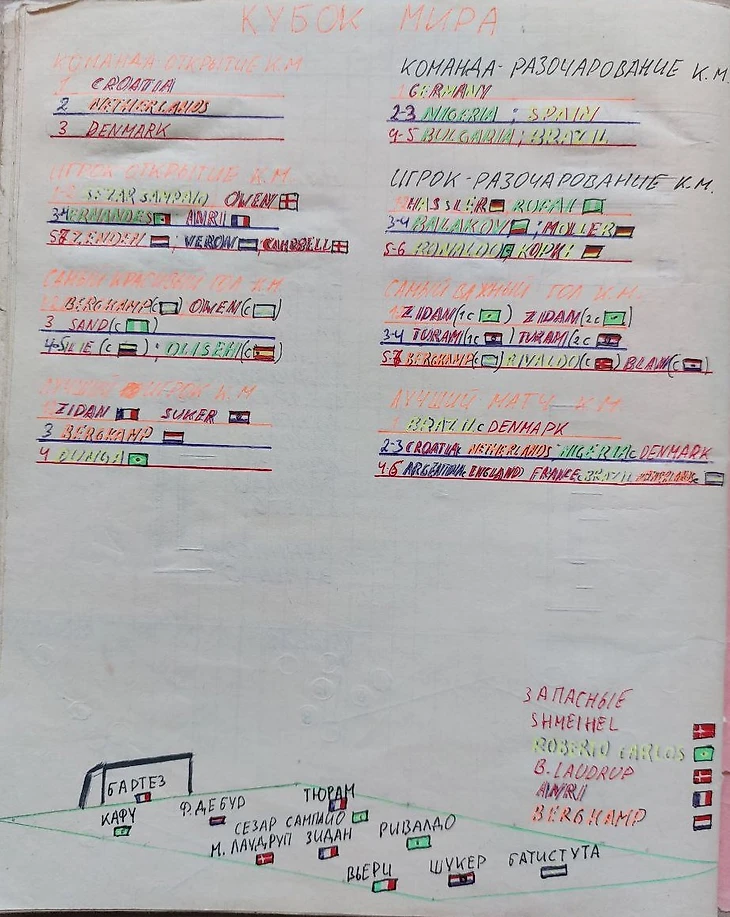 КУБОК МИРА
КОМАНДА ОТКРЫТИЕ К.М
1 CROATIA
2 NETHERLANDS
3 DENMARK
КОМАНДА-РАЗОЧАРОВАНИЕ К.М.
1 GERMANY
2-3 NIGERIA ; SPAIN
4-5 BULGARIA ; BRAZIL
ИГРОК ОТКРЫТИЕ К.М.
1-2 SEZAR SAMPAIO OWEN
3-4 ERNANDES ANRI
5-7 ZENDEN ; VERON ; CAMPBELL
ИГРОК-РАЗОЧАРОВАНИЕ К.М.
HASSLER
3-4 BALAKOV ; MOLLER
5-6 RONALDO KOPKE
САМЫЙ КРАСИВЫЙ ГОЛ К.М.
1-2 BERGKAMP(С ) OWEN(С )
3 SAND(С )
4-5 OLISEH(С )
САМЫЙ ВАЖНЫЙ ГОЛ К.М.
ZIDAN(1С ) ZIDAN(2С )
3-4 TURAM(1С ) TURAM(2С )
5-7 BERGKAMP(С ) RIVALDO(С ) BLAN(С )
ЛУЧШИЙ ИГРОК К.М
ZIDAN SUKER
3 BERGKAMP
4 DUNGA
ЛУЧШИЙ МАТЧ К.М.
1 BRAZIL С DENMARK
2-3 CROATIA С NETHERLANDS NIGERIA С DENMARK
4-6 ARGENTINA С ENGLAND FRANCE С BRAZIL NETHERLANDS С
ЗАПАСНЫЕ
SHMEIHEL
ROBERTO CARLOS
B. LAUDRUP
ANRI
BERGKAMP
БАРТЕЗ
КАФУ Ф.ДЕБУР ТЮРАМ
СЕЗАР САМПАЙО
М. ЛАУДРУП ЗИДАН РИВАЛДО
ВЬЕРИ ШУКЕР БАТИСТУТА